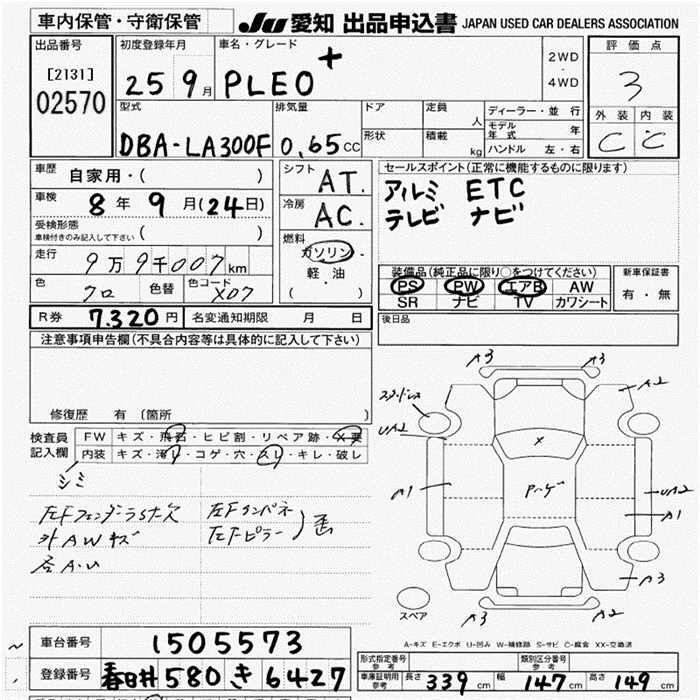 車内保管・守衛保管
JU 愛知 出品申込書 JAPAN USED CAR DEALERS ASSOCIATION
出品番号
[2131]
02570
初度登録年月
25 9月
車名・グレード
PLEO+
2WD
・
4WD
評価点
3
外装 内装
C C
型式
DBA-LA300F
排気量
0.65cc
ドア
形状
定員 人
積載 kg
ディーラー・並行
モデル年式 年
ハンドル 左・右
車歴
自家用・( )
車検
8年 9月(24日)
受検形態
車検付きのみ記入して下さい ( )
走行
9万9千007km
色
クロ
色替
色コード
X07
シフト
AT.
冷房
AC.
燃料
ガソリン・
軽・油
( )
セールスポイント(正常に機能するものに限ります)
アルミ ETC
テレビ ナビ
装備品(純正品に限り○をつけてください)
PS PW エアB AW
SR ナビ TV カワシート
新車保証書
有・無
R券 7.320円
名変通知期限 月 日
後日品
注意事項申告欄(不具合内容等は具体的に記入して下さい)
修復歴 有 (箇所 )
検査員
記入欄
FW キズ・飛石・ヒビ割・リペア跡・X要
内装 キズ・汚レ・コゲ・穴・スレ・キレ・破レ
シミ
左Fフェンダーラ
外AWキズ
左Fピラー
A3 A3
A2
UA2
X
A1
UA2
A1
A3
A3 A2
スペア
A-キズ E-エクボ U-凹み W-補修跡 S-サビ C-腐食 XX-交換済
車台番号 1505573
登録番号 春日井 580 き 6427
形式指定番号
参考
類別区分番号
参考
車庫証明用
参考
長さ 339cm 幅 147cm 高さ 149cm